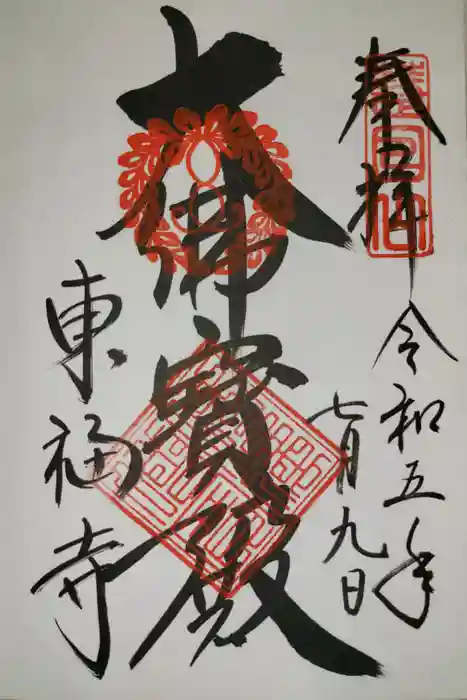 奉拝
令和五年
七月九日
大佛寶殿
東福寺